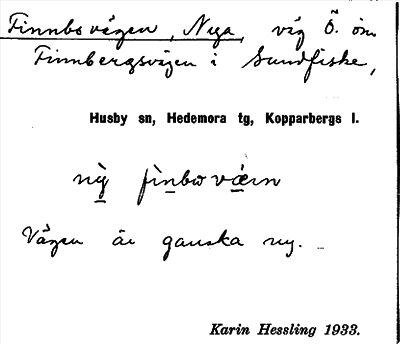 Finnbovägen, Nya, väg Ö. om
Finnbergsvägen i Sundfiske,
Husby sn, Hedemora tg, Kopparbergs l.
nỳ fìnbωvæ̀ιn
Vägen är ganska ny.
Karin Hessling 1933.